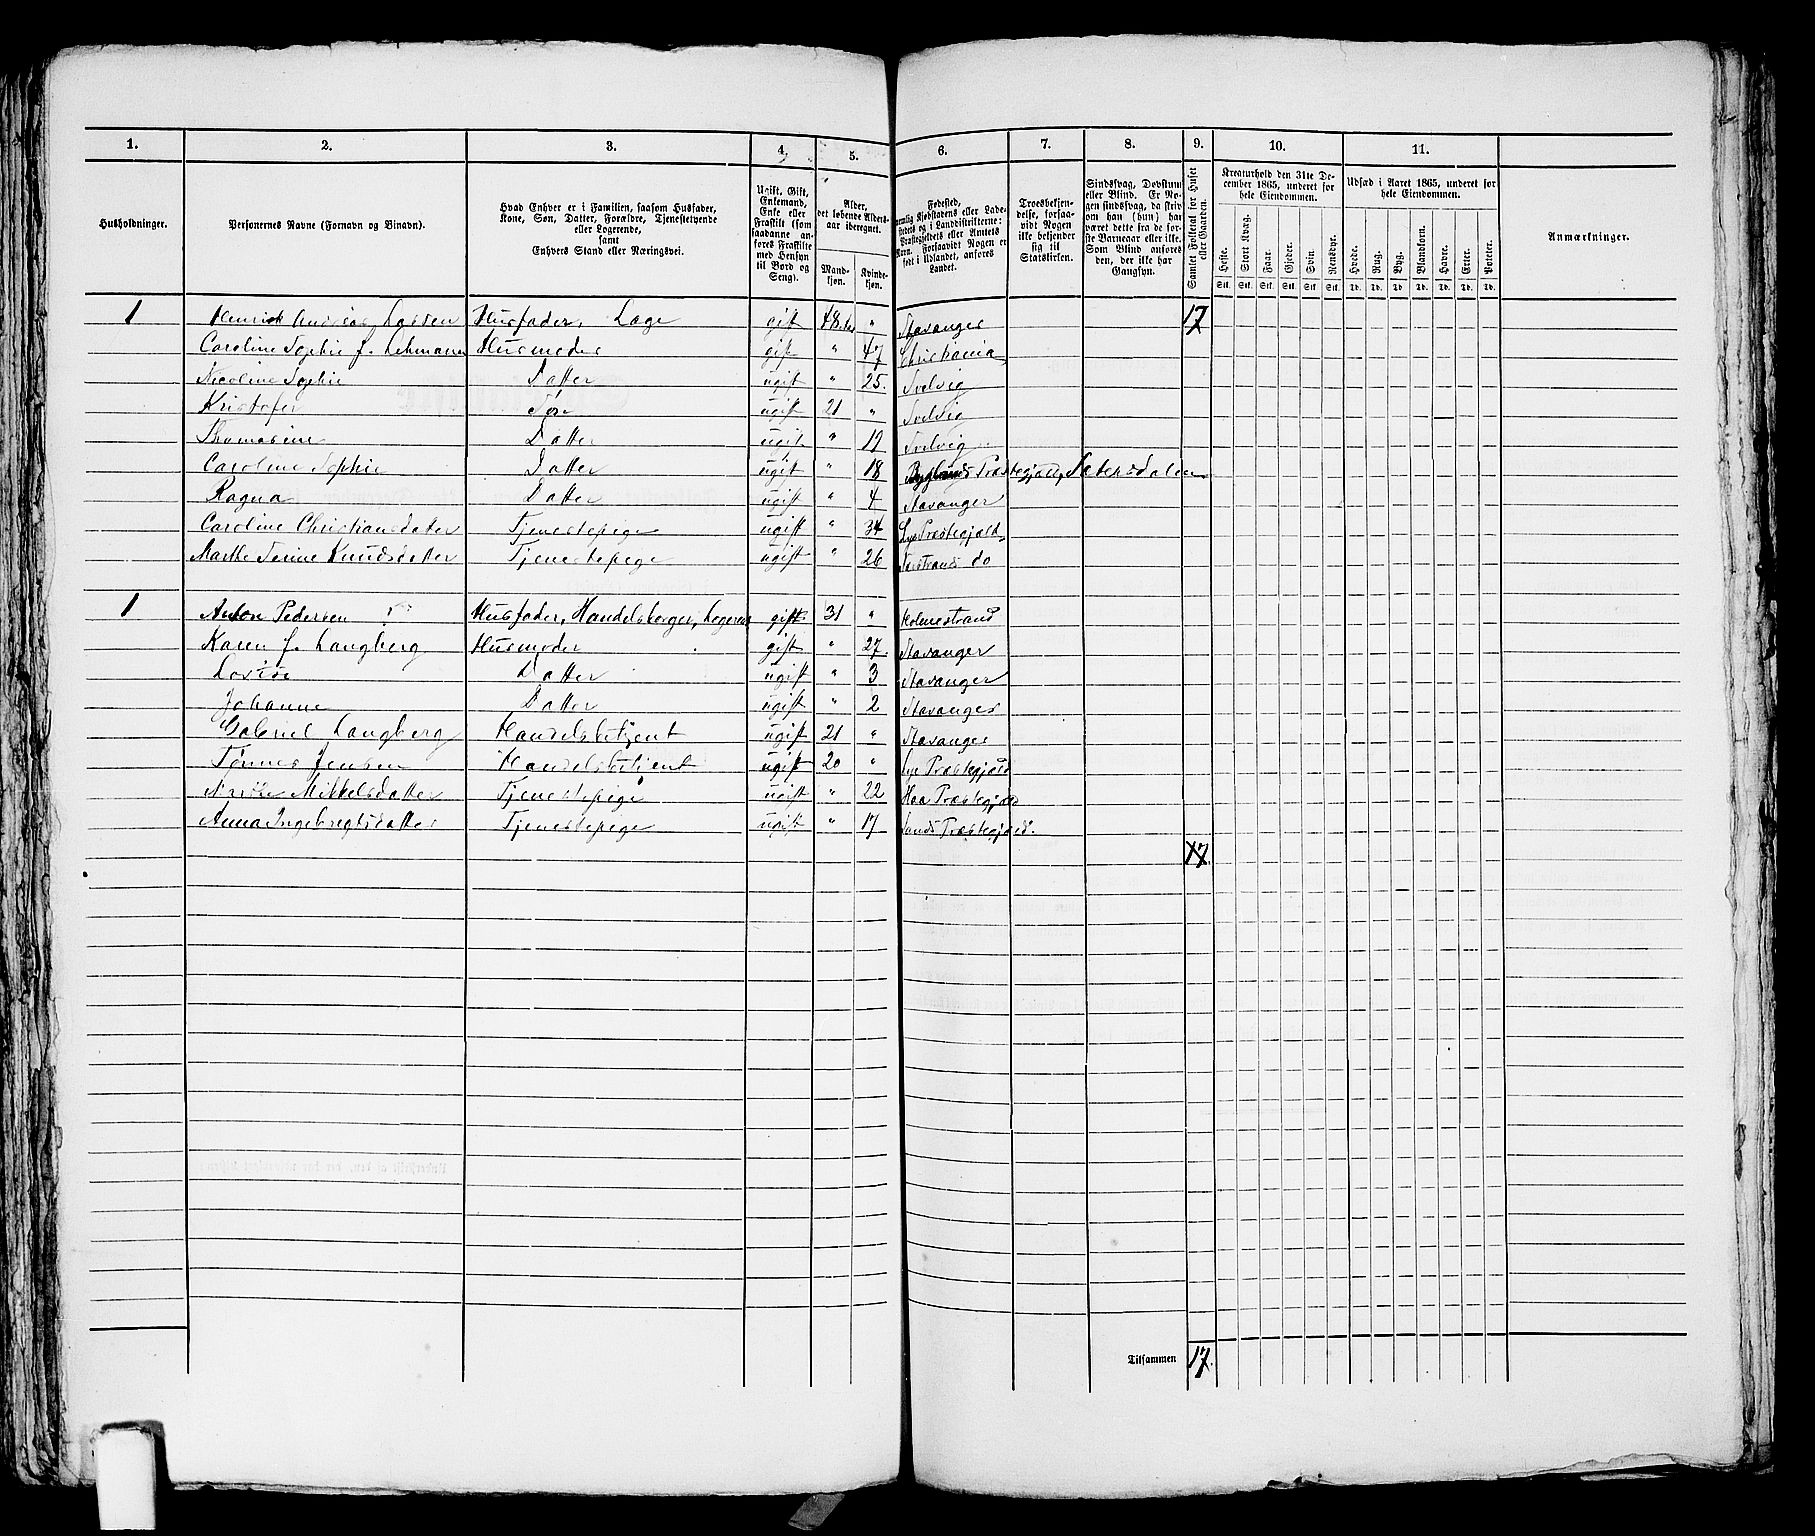 1. 2. 3. 4. 5. 6. 7. 8. 9. 10. 11.
Husholdninger.
Personernes Navne (Fornavn og Binavn).
Hvad Enhver er i Familien, saasom Husfader,
Kone, Søn, Datter, Forældre, Tjenestetyende
eller Logerende,
samt
Enhvers Stand eller Næringsvei.
Ugift, Gift,
Enkemand,
Enke eller
Fraskilt (som
saadanne an-
føres Fraskilte
med Hensyn
til Bord og
Seng).
Alder,
det løbende Alders-
aar iberegnet.
Mand-
kjøn.
Kvinde-
kjøn.
Fødested,
nemlig Kjøbstadens eller Lade-
stedets og i Landdistrikterne:
Præstegjeldets eller Amtets
Navn. Forsaavidt Nogen er
født i Udlandet, anføres
Landet.
Troesbekjen-
delse, forsaa-
vidt Nogen
ikke bekjender
sig til
Statskirken.
Sindssvag, Døvstum
eller Blind. Er No-
gen sindssvag, da skriv
om han (hun) har
været dette fra de før-
ste Barneaar eller ikke.
Som Blind anføres
den, der ikke har
Gangsyn.
Samlet Folketal for Huset
eller Gaarden.
Kreaturhold den 31te De-
cember 1865, underet for
hele Eiendommen.
Heste. Stort Kvæg. Faar. Gjeder. Svin. Rensdyr.
Stk. Stk. Stk. Stk. Stk. Stk.
Udsæd i Aaret 1865, underet for
hele Eiendommen.
Hvede. Rug. Byg. Blandkorn. Havre. Erter. Poteter.
Td. Td. Td. Td. Td. Td. Td.
Anmærkninger.
1 Henrik Andreas Larsen Husfader, Læge gift 48 " Stavanger 17
Caroline Sophie f. Lehmann Husmoder gift " 47 Christiania
Nicoline Sophie Datter ugift " 25. Svelvig
Kristofer Søn ugift 21 " Svelvig
Thomasine Datter ugit " 19 Svelvig
Caroline Sophie Datter ugift " 18 Byglands Præstegjæld, Sætersdalen
Ragna Datter ugift " 4 Stavanger
Caroline Christiansdatter Tjenestepige ugift " 34 Lye Præstegjæld
Marthe Serine Knudsdatter Tjenestepige ugift " 26 do
1 Anton Pedersen Husfader, Handelsborger, gift 31 " Holmestrand
Karen f. Langberg Husmoder gift " 27 Stavanger
Datter ugift " 3 Stavanger
Johanne Datter ugift " 2 Stavanger
Gabriel Langberg Handelsbetjent ugift 21 " Stavanger
Tønnes Jensen Handelsbetjent ugift 20 " Lye Præstegjæld
Mikkelsdatter Tjenestepige ugift " 22 Haa Præstegjæld
Anna Ingebregtsdatter Tjenestepige ugift " 17 Sands Præstegjæld.
17.
Tilsammen 17.